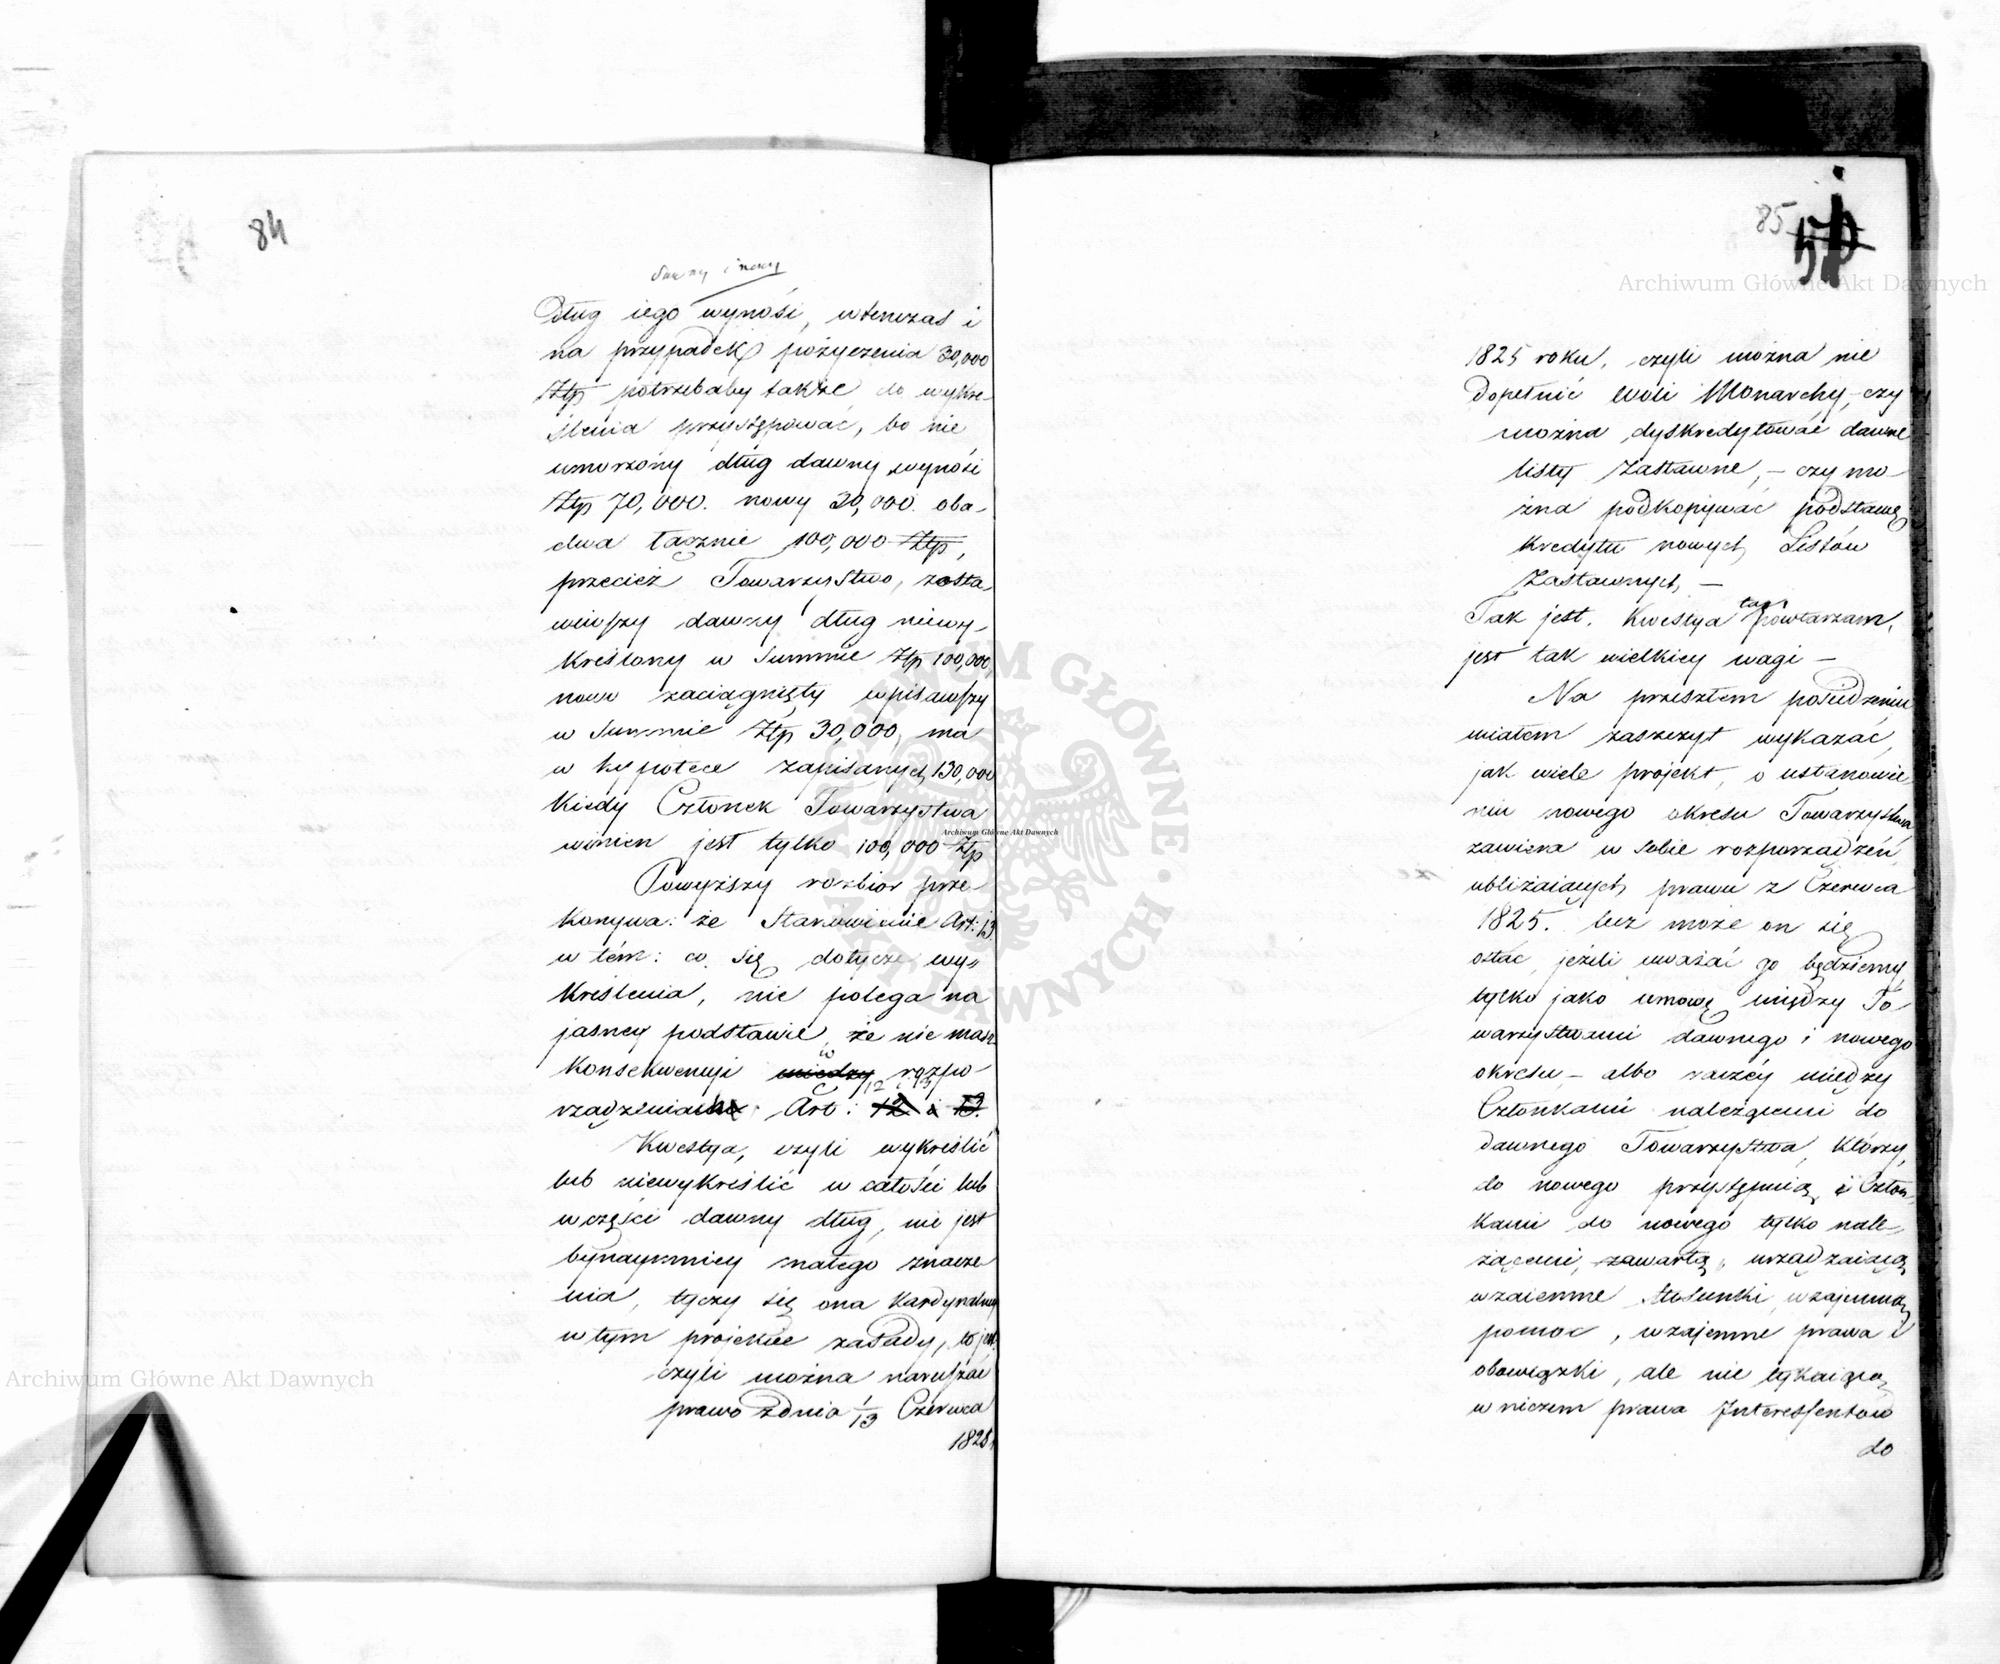 84
dawny i nowy
Dług iego wynosi, wtenczas i
na przypadek pożyczenia 30,000
Złp potrzebaby także do wykre-
ślenia przystępować, bo nie
umorzony dług dawny wynosi
Złp 70,000. nowy 30,000. oba-
dwa łącznie 100,000 Złp,
przecież Towarzystwo, zosta-
wiwszy dawny dług niewy-
kreślony w Summie Złp 100,000,
nowo zaciągnięty wpisawszy
w Summie Złp 30,000, ma
w hypotece zapisanych 130,000
kiedy Członek Towarzystwa
winien jest tylko 100,000 Złp
Powyższy rozbior prze-
konywa: że Stanowienie Art: 13
w tém: co się dotycze wy-
kreślenia, nie polega na
jasney podstawie, że nie masz
w
konsekwencyi między rozpo-
12 i 13
rządzeniach Art: 12 i 13.
Kwestya, czyli wykreślić
lub niewykreślić w całości lub
w części dawny dług, nie jest
bynaymniey małego znacze-
nia, tyczy się ona kardynalney
w tym projekcie zasady, to jest:
czyli można naruszać
prawo z dnia 1/13 Czerwca
1825
85
1825 roku, czyli można nie
dopełnić woli Monarchy, - czy
można dyskredytować dawne
listy Zastawne, - czy mo-
żna podkopywać podstawę
kredytu nowych Listów
Zastawnych, -
Tak jest. Kwestya ta powtarzam,
jest tak wielkiey wagi -
Na przeszłem posiedzeniu
miałem zaszczyt wykazać,
jak wiele projekt, o ustanowie-
niu nowego okresu Towarzystwa
zawiera w sobie rozporządzeń,
ubliżaiących prawu z Czerwca
1825. lecz może on się
ostać, jeżeli uważać go będziemy,
tylko jako umowę między To-
warzystwami dawnego i nowego
okresu - albo raczéy między
Członkami należącemi do
dawnego Towarzystwa, którzy,
do nowego przystępuią, i Człon-
kami do nowego tylko nale-
żącemi, zawartą, urządzaiącą
wzaiemne stosunki, wzajemną
pomoc, wzajemne prawa i
obowiązki, ale nie tykaiącą
w niczem prawa Interessentów
do
Archiwum Główne Akt Dawnych
Archiwum Główne Akt Dawnych
Archiwum Główne Akt Dawnych